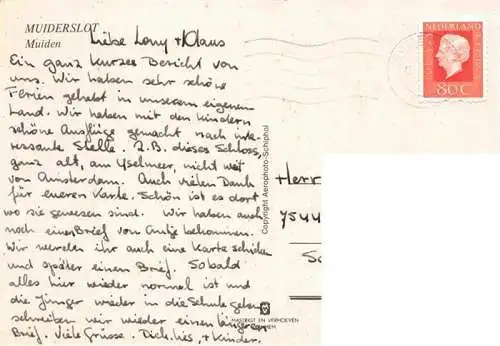 MUIDERSLOT
Muiden
Liebe Lony + Klaus
Ein ganz kurzer Bericht von
uns. Wir haben sehr schöne
Ferien gehabt in unserem eigenen
Land. Wir haben mit den Kindern
schöne Ausflüge gemacht nach inte-
ressante Stelle. Z.B. dieses Schloss,
ganz alt, am Yselmeer, nicht weit
von Amsterdam. Auch vielen Dank
für eueren Karte. Schön ist es dort
wo sie gewesen sind. Wir haben auch
noch einer Brief von Antje bekommen.
Wir werden ihr auch eine Karte schicken
und später einen Brief. Sobald
alles hier wieder normal ist und
die Jünger wieder in die Schule gehen
schreiben wir wieder einen längeren
Brief. Viele Grüsse. Dick, + Kinder.
Copyright Aerophoto-Schiphol
NEDERLAND
80c
Herr
7544